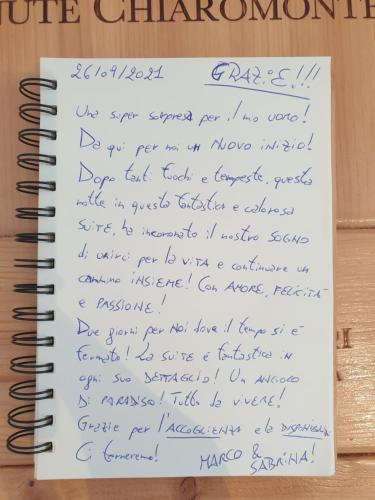 UTE CHIAROMONTE
26/09/2021 GRAZIE!!!
Una super sorpresa per il mio UOMO!
Da qui per noi un NUOVO INIZIO!
Dopo tanti fuochi e tempeste, questa
notte in questa fantastica e calorosa
SUITE, ha incoronato il nostro SOGNO
di unirci per la VITA e continuare un
cammino INSIEME! Con AMORE, FELICITÀ
e PASSIONE!
Due giorni per NOI dove il tempo si è
fermato! La SUITE è fantastica in
ogni suo DETTAGLIO! Un ANGOLO
DI PARADISO! Tutto da VIVERE!
Grazie per l'ACCOGLIENZA e la
Ci torneremo! MARCO & SABRINA!